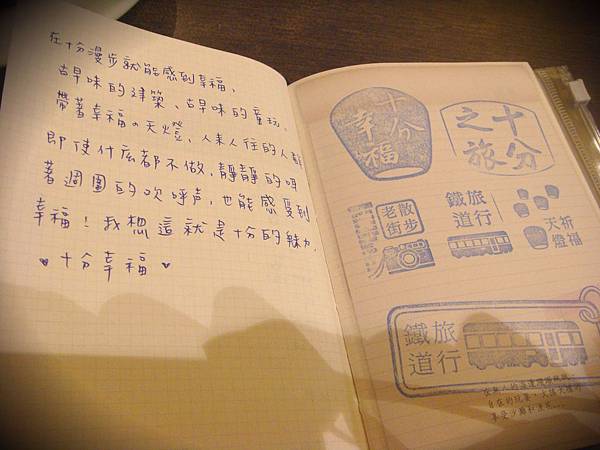 在十分漫步就能感到幸福、
古早味的建築、古早味的童玩、
帶著幸福の天燈、人來人往的人群
即使什庅都不做,靜靜的呼
著週圍的吹呼声,也能感受到
幸福!我想這就是十分的魅力.
♥ 十分幸福 ♥
十分
幸福
十分
之旅
老街
散步
鐵道
旅行
天燈
祈福
鐵道
旅行